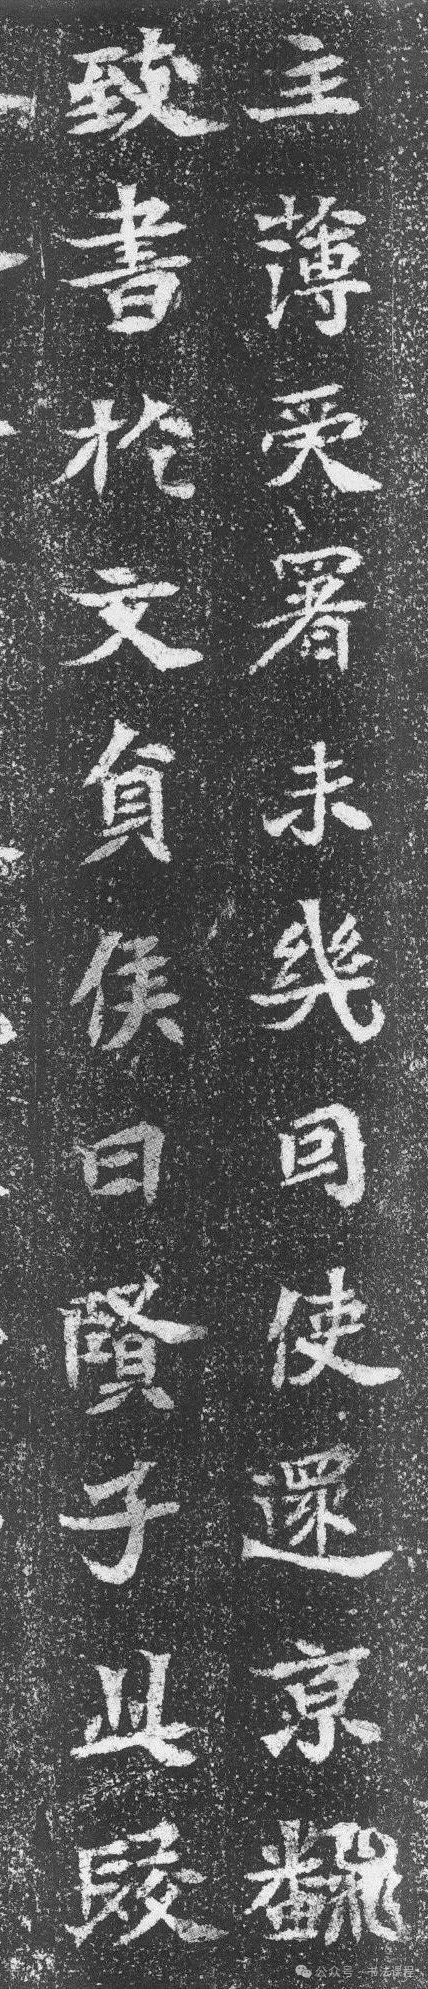 主薄受署未幾回使還京飜
致書於文貞侯曰賢子此段
公众号 · 书法课程